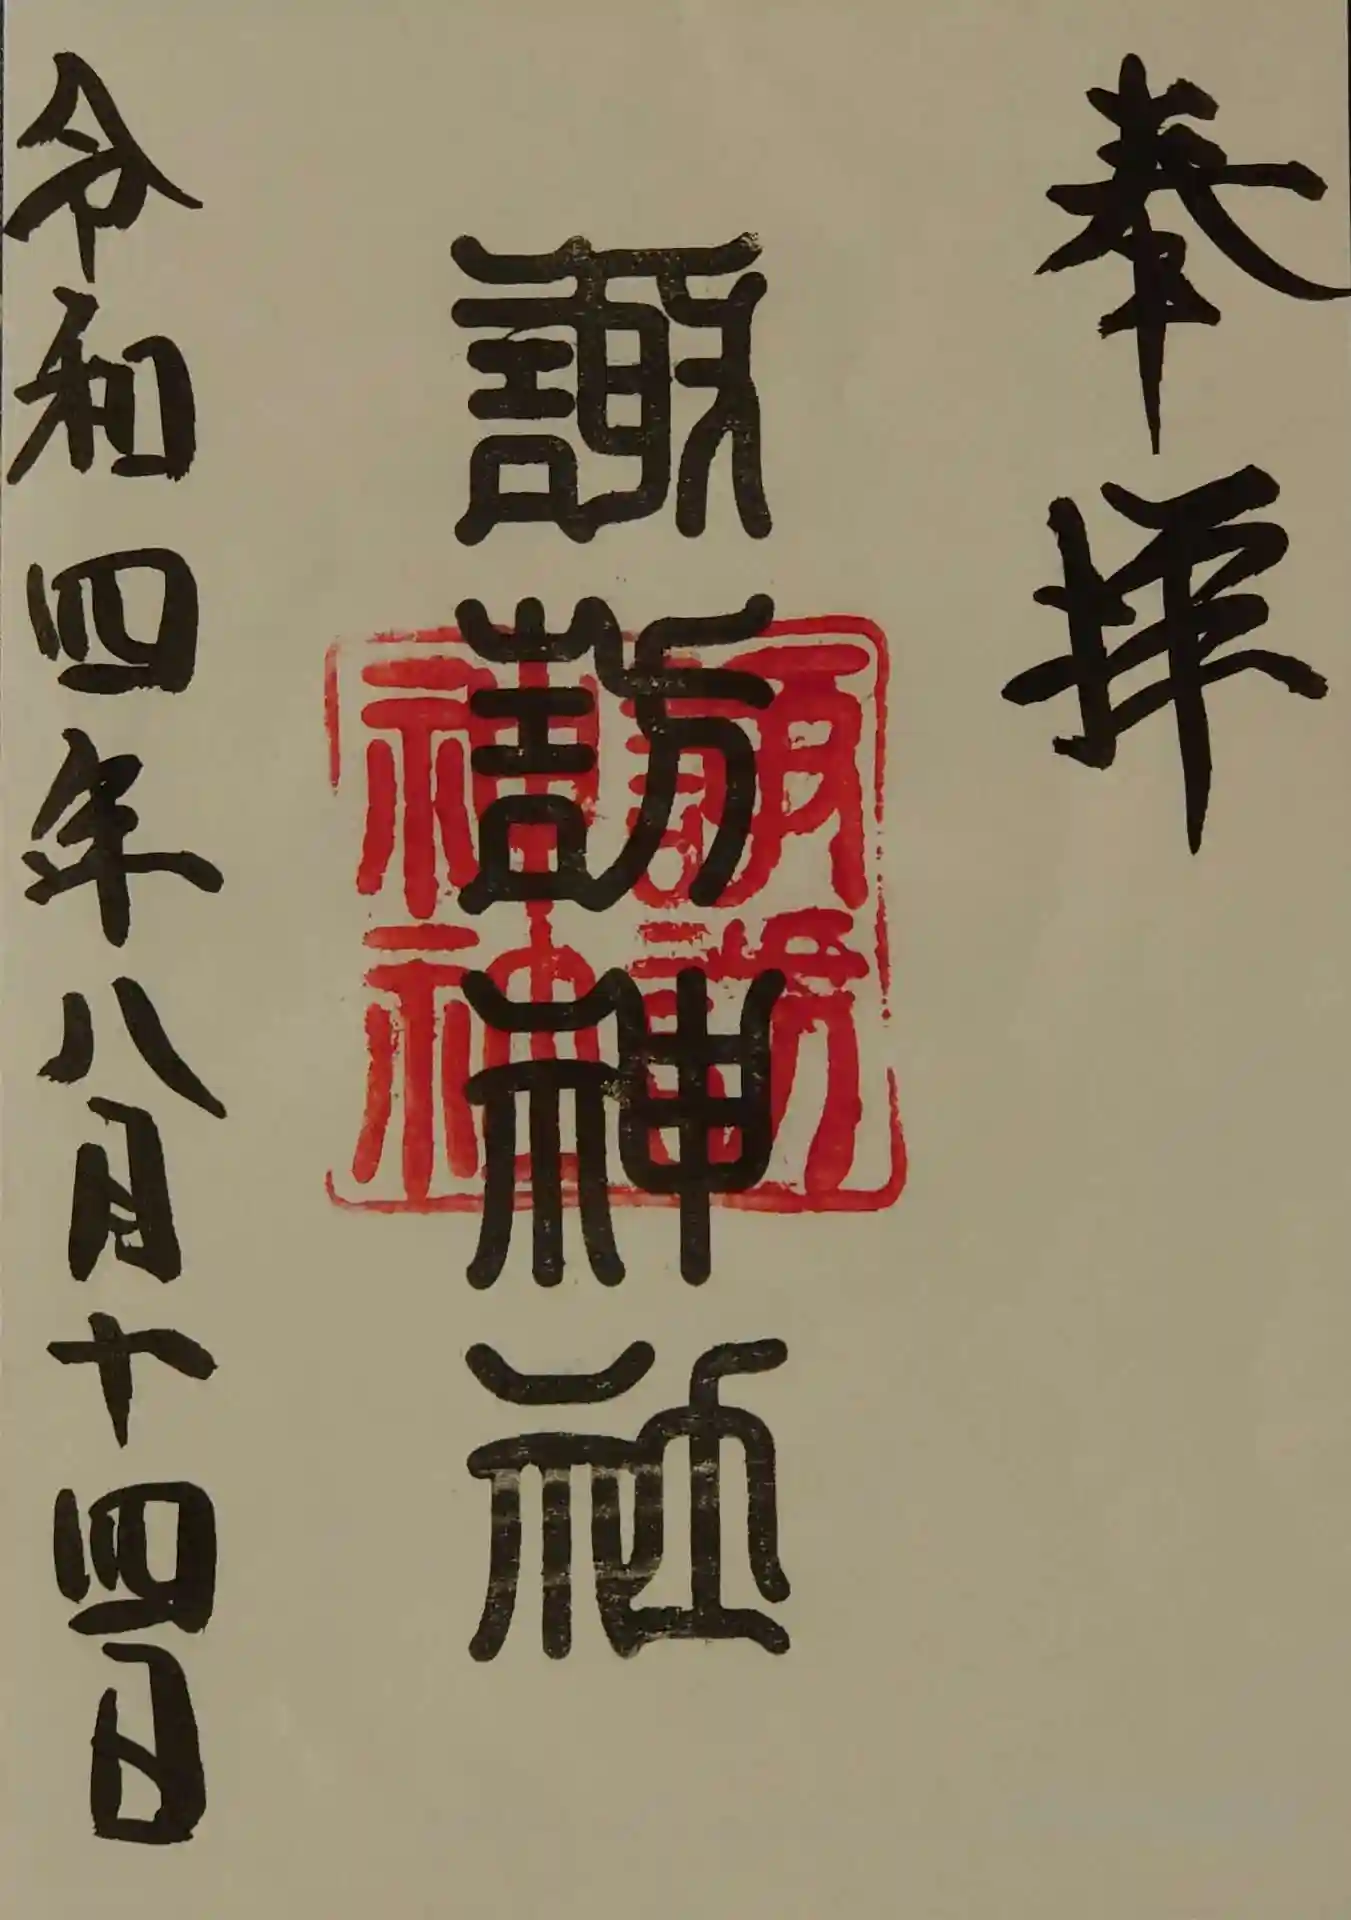 奉拝
諏訪神社
諏訪
神社
令和四年八月十四日